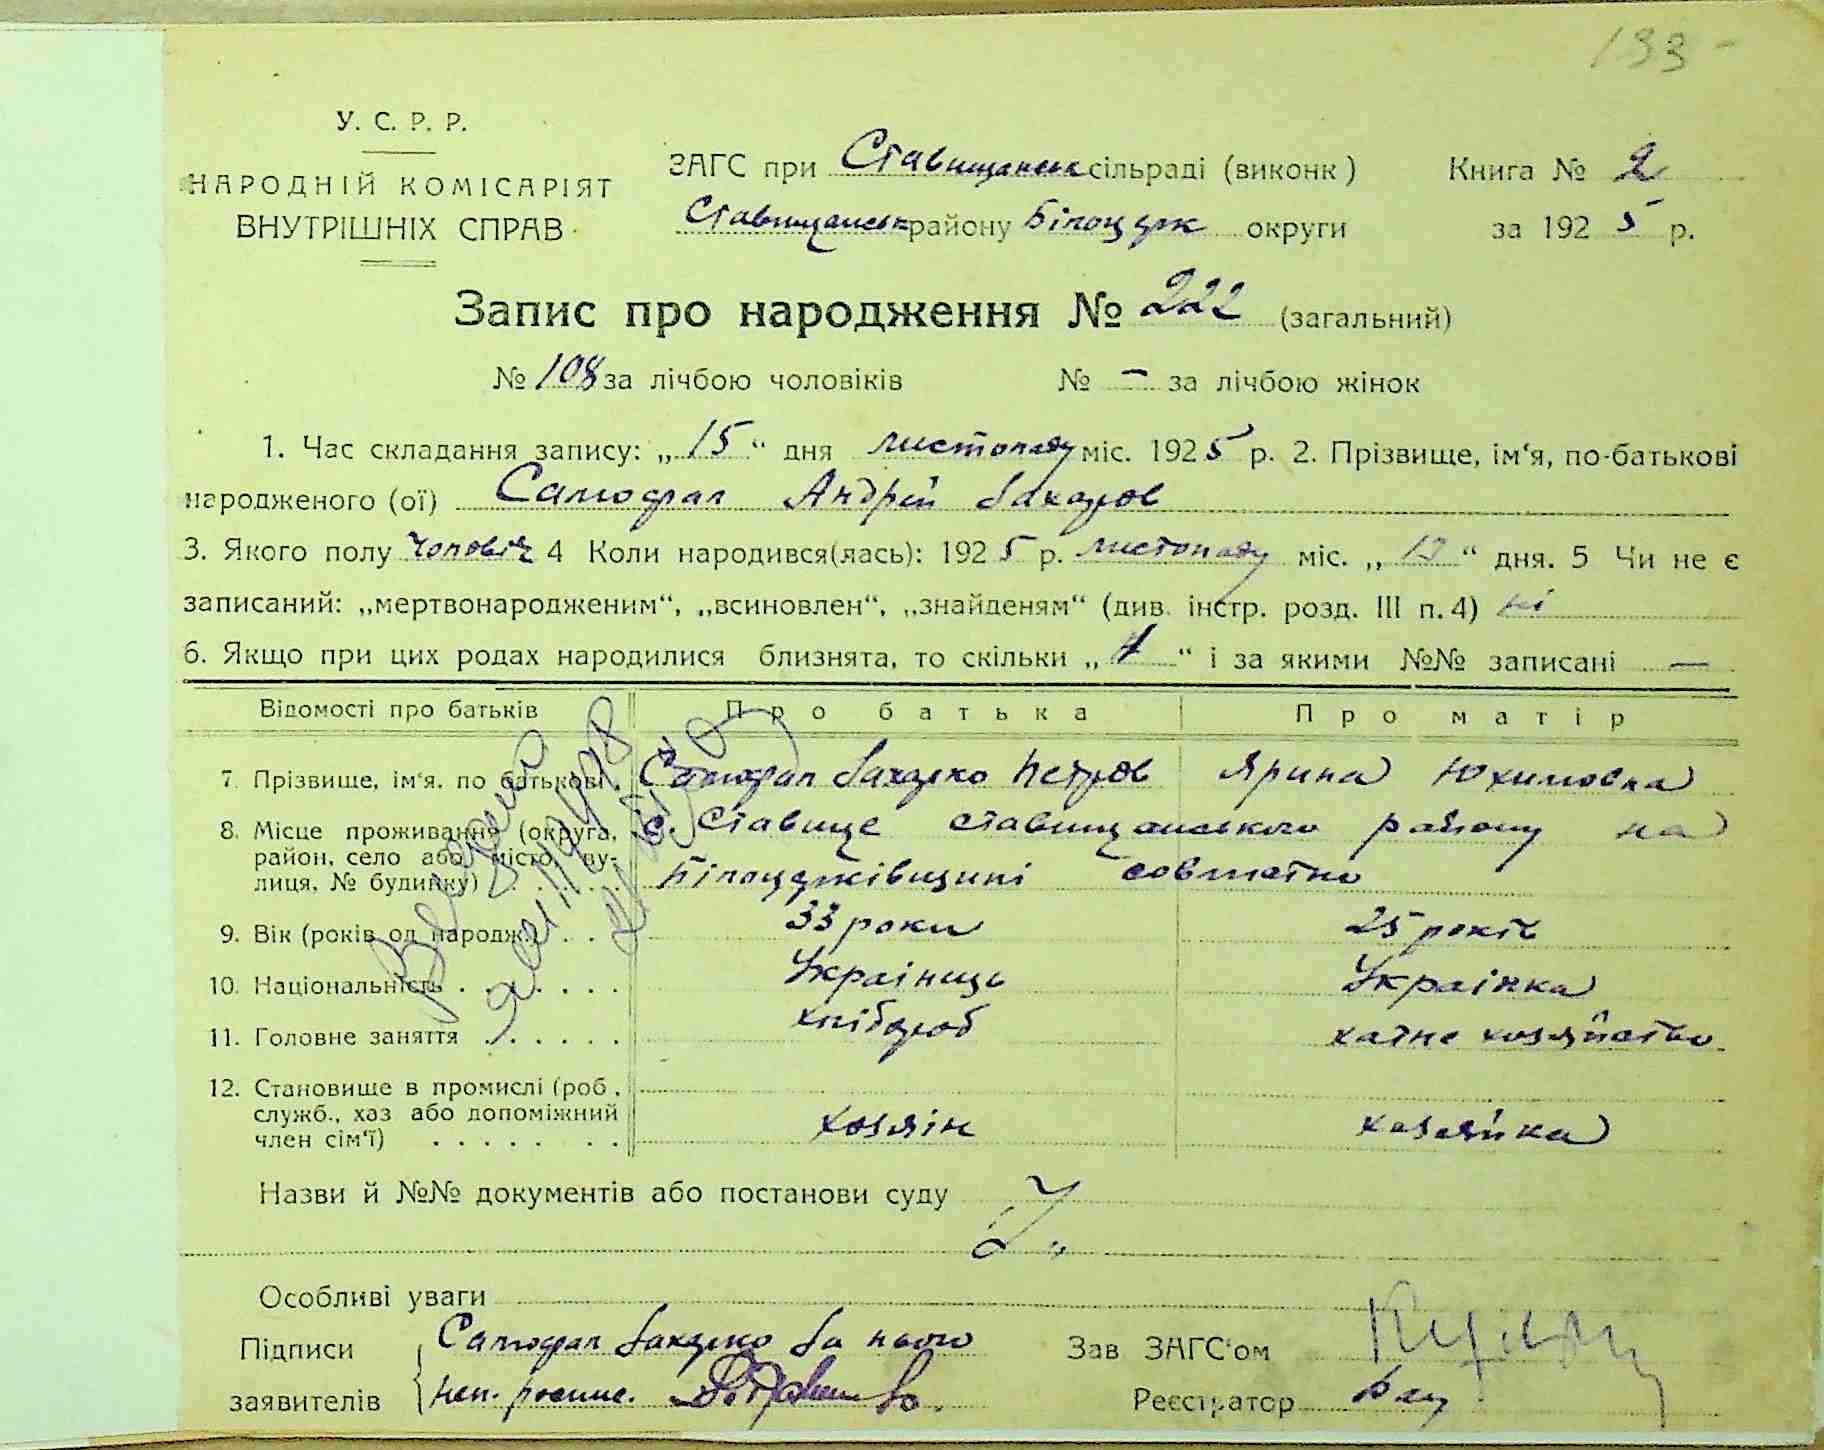 133 -
У. С. Р. Р.
НАРОДНІЙ КОМІСАРІЯТ
ВНУТРІШНІХ СПРАВ
ЗАГС при Ставищанськ сільраді (виконк) Книга № 2
Ставищанськ району Білоцерк округи за 1925 р.
Запис про народження № 222 (загальний)
№ 108 за лічбою чоловіків № – за лічбою жінок
1. Час складання запису: „15“ дня листопаду міс. 1925 р. 2. Прізвище, ім‘я, по-батькові
народженого (ої) Самофал Андрій Захаров
3. Якого полу чоловіч 4 Коли народився(лась): 1925 р. листопаду міс. „12“ дня. 5 Чи не є
записаний: „мертвонародженим“, „всиновлен“, „знайденям“ (див. інстр. розд. III п. 4) ні
6. Якщо при цих родах народилися близнята, то скільки „1“ і за якими №№ записані —
Відомості про батьків Про батька Про матір
7. Прізвище, ім‘я, по батькові. Самофал Захарко Петров Ярина Юхимовна
8. Місце проживання (округа, с. Ставище ставищанського району на
район, село або місто, ву-
лиця, № будинку) Білоцерківщині совместно
9. Вік (років од народж.) 33 роки 25 років
10. Національність Украінець Украінка
11. Головне заняття хлібороб хатне хозяйство
12. Становище в промислі (роб.,
служб., хаз або допоміжний
член сім‘ї) хозяін хазяйка
Назви й №№ документів або постанови суду
Особливі уваги
Підписи Самофал Захарко За нього
заявителів неп. роспис.
Зав ЗАГС‘ом
Реєстратор